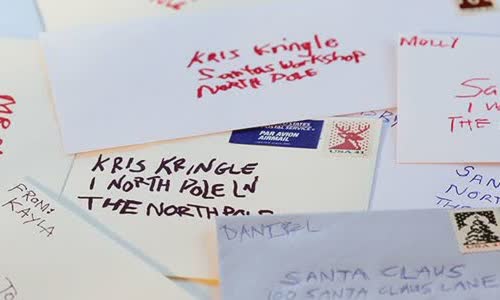 KRIS KRINGLE
SANTAS WORKSHOP
NORTH POLE
MOLLY
SA
1 
THE
UNITED STATES
POSTAL SERVICE
PAR AVION
AIRMAIL
USA 41
KRIS KRINGLE
1 NORTH POLE LN
THE NORTH POLE
FROM:
KAYLA
TO
SAN
NORTH
THE
DANIEL
SANTA CLAUS
100 SANTA CLAUS LANE